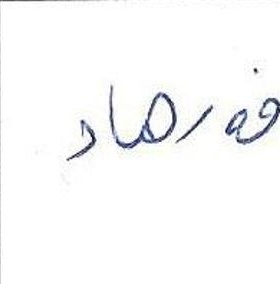 فرهاد